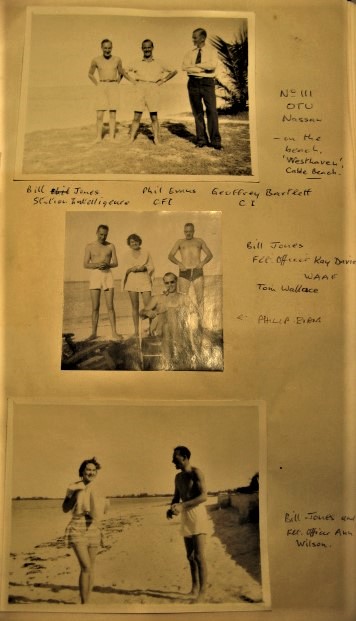 No 111
OTU
Nassau
- on the
beach,
'Westhaven',
Cable Beach.
Bill Jones Phil Evans Geoffrey Bartlett
Station Intelligence CFI C I
Bill Jones
Flt. Officer Kay Davis
WAAF
Tom Wallace
PHILIP
Bill Jones and
Flt. Officer Ann
Wilson.